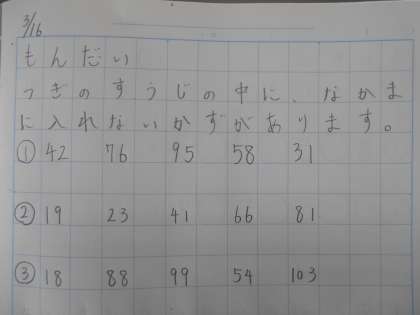 3/16
もんだい
つぎのすうじの中に、なかま
に入れないかずがあります。
① 42 76 95 58 31
② 19 23 41 66 81
③ 18 88 99 54 103